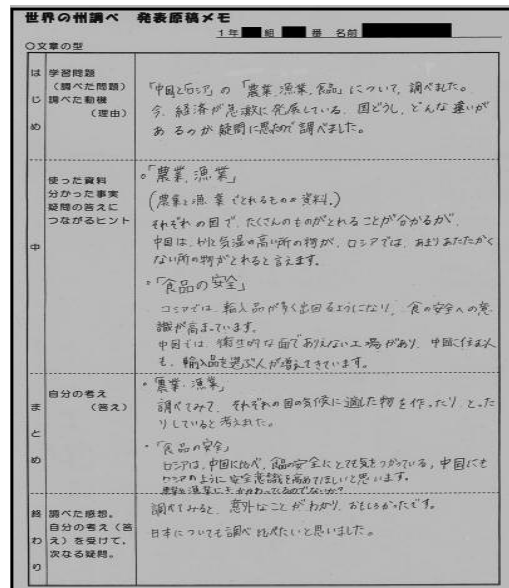 世界の州調べ 発表原稿メモ
1年 組 番 名前
○文章の型
はじめ
学習問題
（調べた問題）
調べた動機
（理由）
「中国とロシア」の「農業、漁業、食品」について、調べました。
今、経済が急激に発展している、国どうし、どんな違いが
あるのか疑問に思ったので調べました。
中
使った資料
分かった事実
疑問の答えに
つながるヒント
。「農業、漁業」
（農業と漁業でとれるものの資料。）
それぞれの国で、たくさんのものがとれることが分かるが、
中国は、わりと気温の高い所の物が、ロシアでは、あまりあたたかく
ない所の物がとれると言えます。
。「食品の安全」
ロシアでは、輸入品が多く出回るようになり、食の安全への意
識が高まっています。
中国では、衛生的な面でありえない工場があり、中国に住む人
も、輸入品を選ぶ人が増えてきています。
まとめ
自分の考え
（答え）
・「農業、漁業」
調べてみて、それぞれの国の気候に適した物を作ったり、とった
りしていると考えました。
・「食品の安全」
ロシアは、中国に比べ、食品の安全にとても気をつかっている。中国にも
ロシアのように安全意識を高めてほしいと思います。
農業と漁業にも、かかわってくるのでないか？
終わり
調べた感想。
自分の考え（答
え）を受けて、
次なる疑問。
調べてみると、意外なことがわかり、おもしろかったです。
日本についても調べ比べたいと思いました。